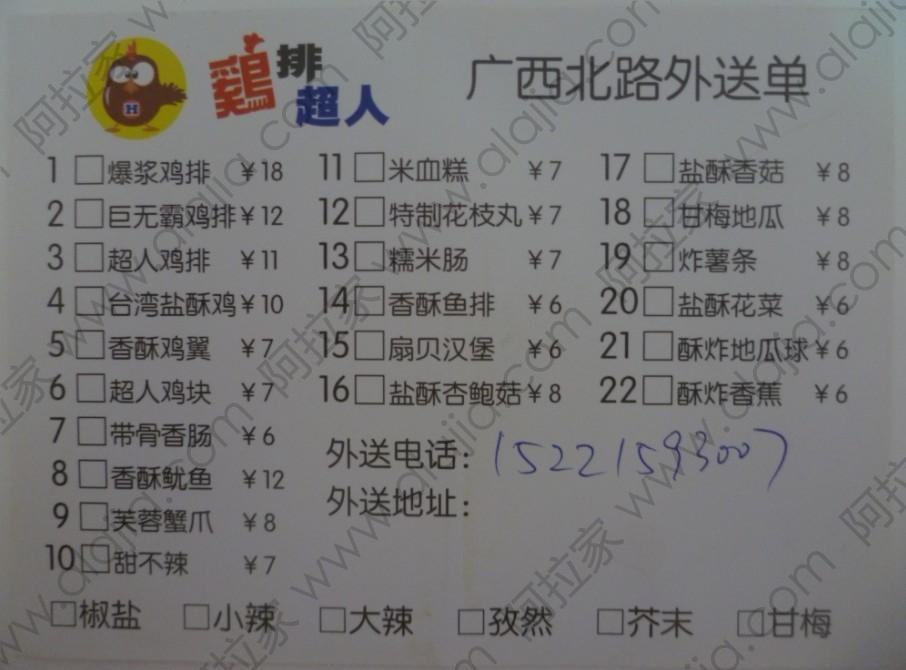 鷄排超人
广西北路外送单
1 爆浆鸡排 ¥18
2 巨无霸鸡排 ¥12
3 超人鸡排 ¥11
4 台湾盐酥鸡 ¥10
5 香酥鸡翼 ¥7
6 超人鸡块 ¥7
7 带骨香肠 ¥6
8 香酥鱿鱼 ¥12
9 芙蓉蟹爪 ¥8
10 甜不辣 ¥7
11 米血糕 ¥7
12 特制花枝丸 ¥7
13 糯米肠 ¥7
14 香酥鱼排 ¥6
15 扇贝汉堡 ¥6
16 盐酥杏鲍菇 ¥8
17 盐酥香菇 ¥8
18 甘梅地瓜 ¥8
19 炸薯条 ¥8
20 盐酥花菜 ¥6
21 酥炸地瓜球 ¥6
22 酥炸香蕉 ¥6
外送电话：15221593007
外送地址：
椒盐 小辣 大辣 孜然 芥末 甘梅
阿拉家 www.alajia.com